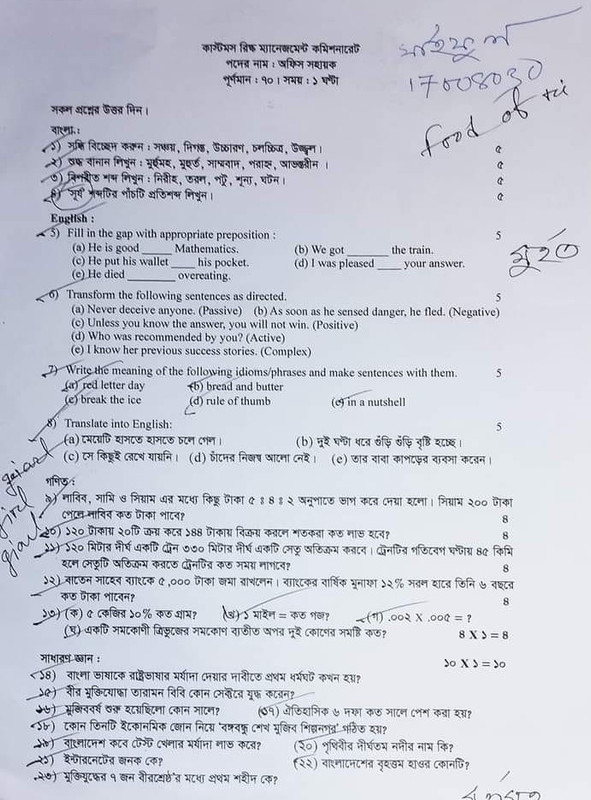 কাস্টমস রিস্ক ম্যানেজমেন্ট কমিশনারেট
পদের নাম : অফিস সহায়ক
পূর্ণমান : ৭০। সময় : ১ ঘন্টা
17008030
food of
সকল প্রশ্নের উত্তর দিন।
বাংলা :
১) সন্ধি বিচ্ছেদ করুন : সঞ্চয়, দিগন্ত, উচ্চারণ, চলচ্চিত্র, উজ্জ্বল। ৫
২) শুদ্ধ বানান লিখুন : মুহুমহ, মুহর্ত, সাম্যবাদ, পরাহ্ন, আভ্যন্তরীন । ৫
৩) বিপরীত শব্দ লিখুন : নিরীহ, তরল, পটু, শূন্য, ঘটন। ৫
৪) 'সূর্য' শব্দটির পাঁচটি প্রতিশব্দ লিখুন। ৫
English :
5) Fill in the gap with appropriate preposition : 5
(a) He is good _____ Mathematics. (b) We got _______ the train.
(c) He put his wallet ____ his pocket. (d) I was pleased ____ your answer.
(e) He died ________ overeating.
6) Transform the following sentences as directed. 5
(a) Never deceive anyone. (Passive) (b) As soon as he sensed danger, he fled. (Negative)
(c) Unless you know the answer, you will not win. (Positive)
(d) Who was recommended by you? (Active)
(e) I know her previous success stories. (Complex)
7) Write the meaning of the following idioms/phrases and make sentences with them. 5
(a) red letter day (b) bread and butter
(c) break the ice (d) rule of thumb (e) in a nutshell
8) Translate into English: 5
(a) মেয়েটি হাসতে হাসতে চলে গেল। (b) দুই ঘন্টা ধরে গুঁড়ি গুঁড়ি বৃষ্টি হচ্ছে।
(c) সে কিছুই রেখে যায়নি। (d) চাঁদের নিজস্ব আলো নেই। (e) তার বাবা কাপড়ের ব্যবসা করেন।
গণিত :
৯) লাবিব, সামি ও সিয়াম এর মধ্যে কিছু টাকা ৫ ঃ ৪ ঃ ২ অনুপাতে ভাগ করে দেয়া হলো। সিয়াম ২০০ টাকা
পেলে লাবিব কত টাকা পাবে? ৪
১০) ১২০ টাকায় ২০টি ক্রয় করে ১৪৪ টাকায় বিক্রয় করলে শতকরা কত লাভ হবে? ৪
১১) ১২০ মিটার দীর্ঘ একটি ট্রেন ৩৩০ মিটার দীর্ঘ একটি সেতু অতিক্রম করবে। ট্রেনটির গতিবেগ ঘন্টায় ৪৫ কিমি
হলে সেতুটি অতিক্রম করতে ট্রেনটির কত সময় লাগবে? ৪
১২) বাতেন সাহেব ব্যাংকে ৫,০০০ টাকা জমা রাখলেন। ব্যাংকের বার্ষিক মুনাফা ১২% সরল হারে তিনি ৬ বছরে
কত টাকা পাবেন? ৪
১৩) (ক) ৫ কেজির ১০% কত গ্রাম? (খ) ১ মাইল = কত গজ? (গ) .০০২ X .০০৫ = ?
(ঘ) একটি সমকোণী ত্রিভুজের সমকোণ ব্যতীত অপর দুই কোণের সমষ্টি কত? ৪ X ১ = ৪
সাধারণ জ্ঞান : ১০ X ১ = ১০
১৪) বাংলা ভাষাকে রাষ্ট্রভাষার মর্যাদা দেয়ার দাবীতে প্রথম ধর্মঘট কখন হয়?
১৫) বীর মুক্তিযোদ্ধা তারামন বিবি কোন সেক্টরে যুদ্ধ করেন?
১৬) মুজিববর্ষ শুরু হয়েছিলো কোন সালে? (১৭) ঐতিহাসিক ৬ দফা কত সালে পেশ করা হয়?
১৮) কোন তিনটি ইকোনমিক জোন নিয়ে 'বঙ্গবন্ধু শেখ মুজিব শিল্পনগর' গঠিত হয়?
১৯) বাংলাদেশ কবে টেস্ট খেলার মর্যাদা লাভ করে? (২০) পৃথিবীর দীর্ঘতম নদীর নাম কি?
২১) ইন্টারনেটের জনক কে? (২২) বাংলাদেশের বৃহত্তম হাওর কোনটি?
২৩) মুক্তিযুদ্ধের ৭ জন বীরশ্রেষ্ঠ'র মধ্যে প্রথম শহীদ কে?